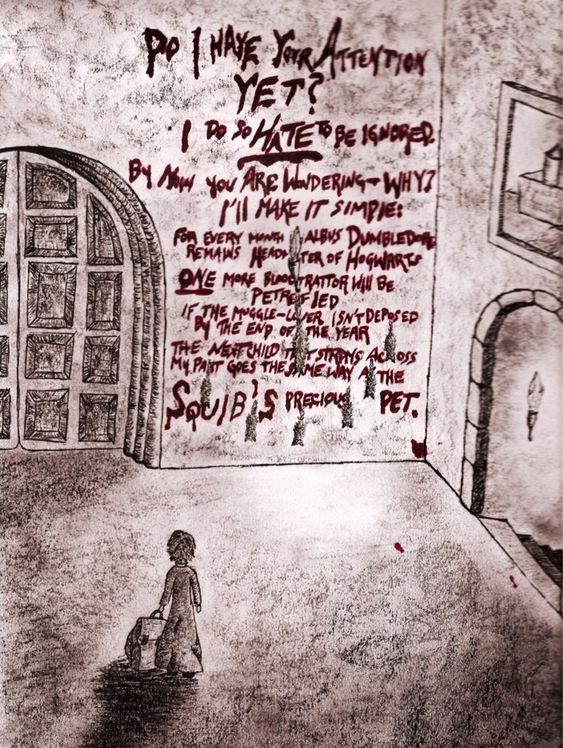 DO I HAVE YOUR ATTENTION
YET?
I DO SO HATE TO BE IGNORED.
BY NOW YOU ARE WONDERING - WHY?
I'LL MAKE IT SIMPLE:
FOR EVERY MONTH ALBUS DUMBLEDORE
REMAINS HEADMASTER OF HOGWARTS
ONE MORE BLOODTRAITOR WILL BE
PETRIFIED
IF THE MUGGLE-LOVER ISN'T DEPOSED
BY THE END OF THE YEAR
THE NEXT CHILD THAT STRAYS ACROSS
MY PATH GOES THE SAME WAY AS THE
SQUIB'S PRECIOUS PET.